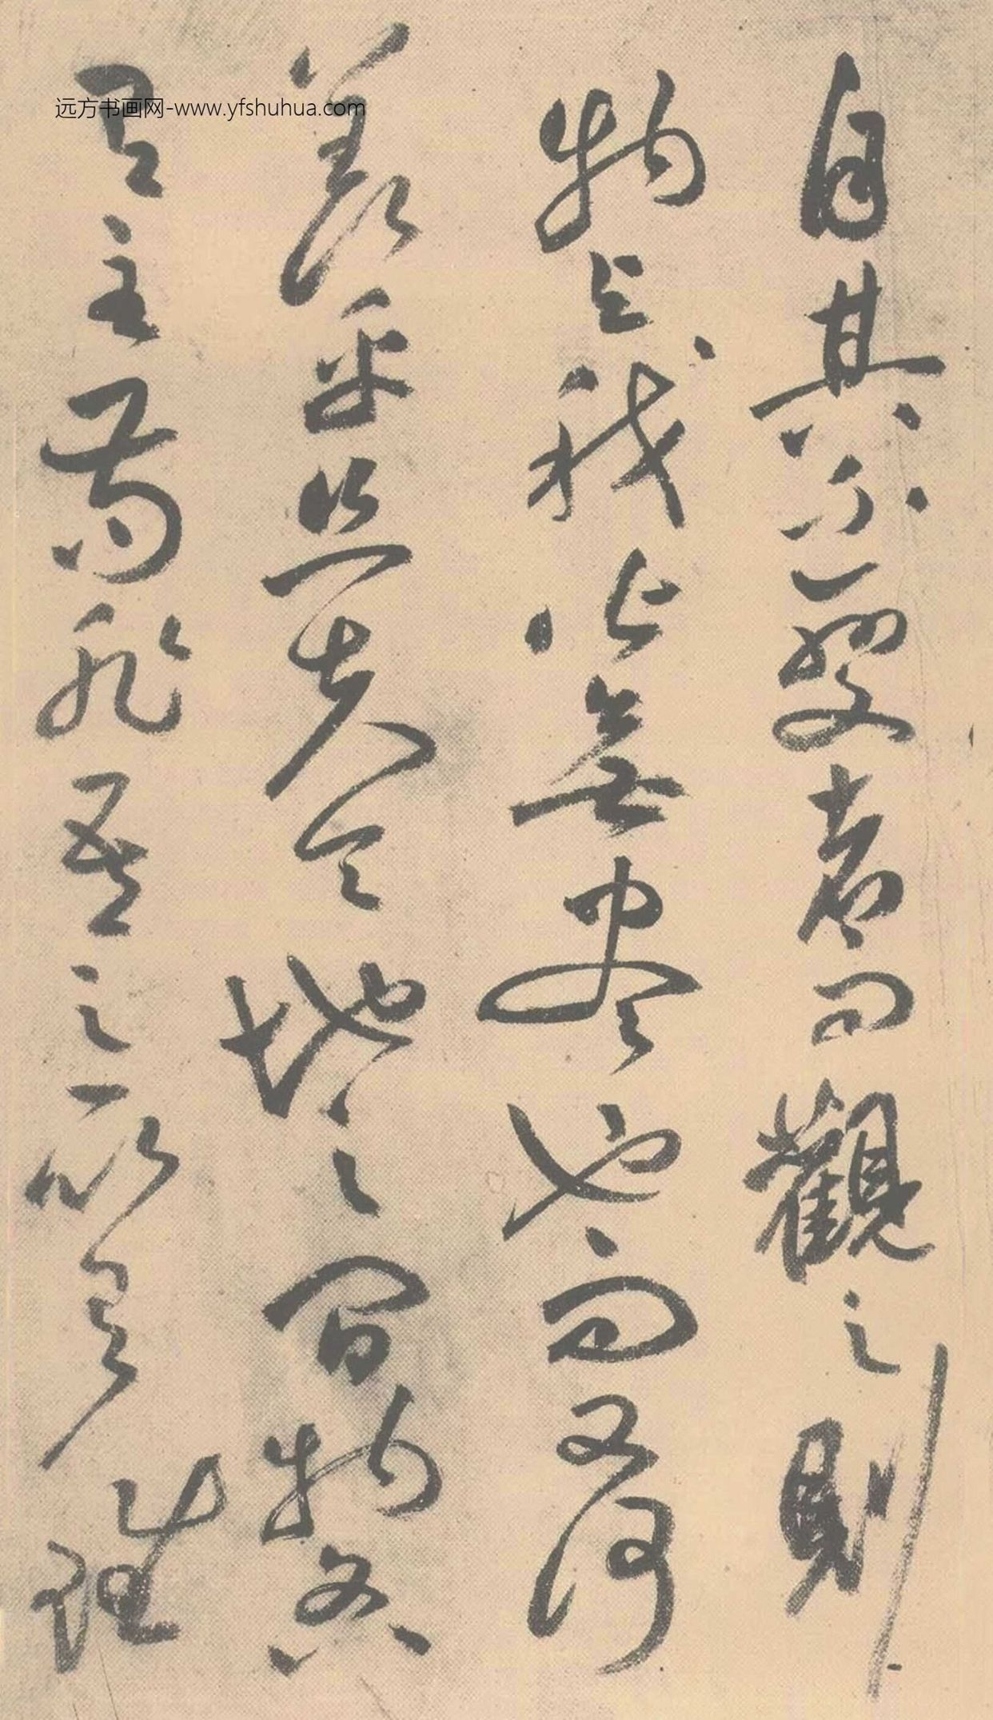 自其不變者而觀之則
物與我皆無盡也而又何
羨乎且夫天地之間物各
有主苟非吾之所有雖
远方书画网-www.yfshuhua.com